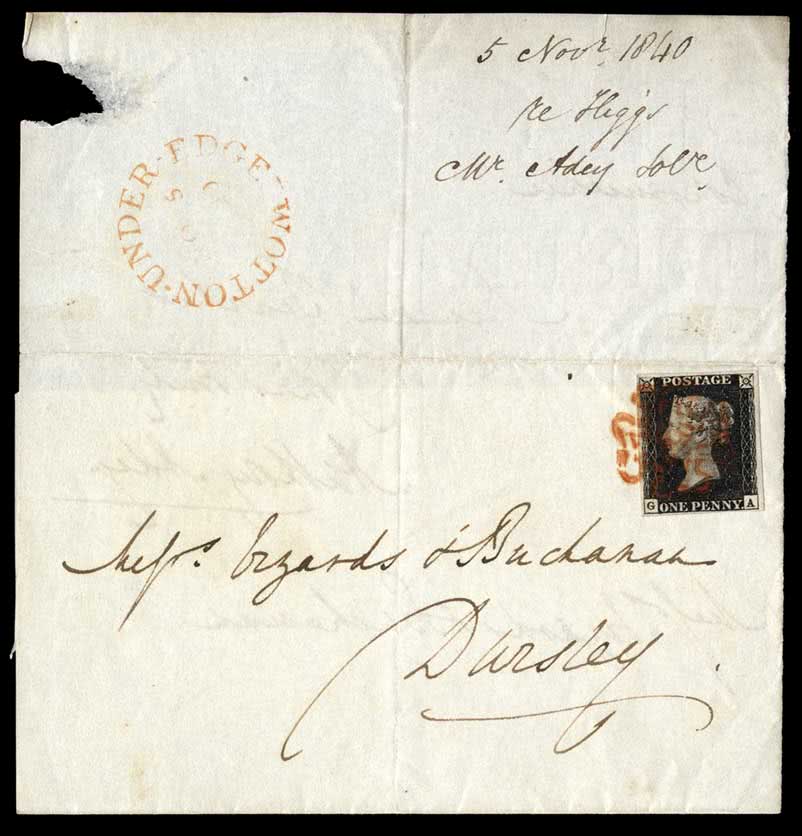 5 Novr. 1840
re Higgs
Mr. Adey Solr.
WOTTON-UNDER-EDGE
POSTAGE
G ONE PENNY A
Messrs. Vizards & Buchanan
Dursley